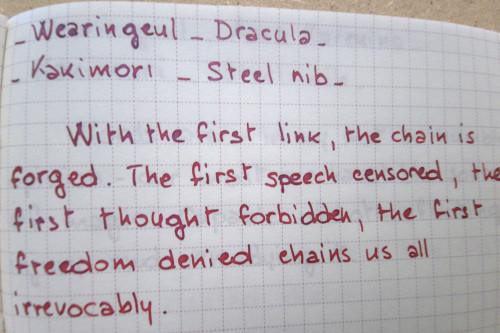 - Wearingeul - Dracula -
- Kakimori - Steel nib -
With the first link, the chain is
forged. The first speech censored, the
first thought forbidden, the first
freedom denied chains us all
irrevocably.